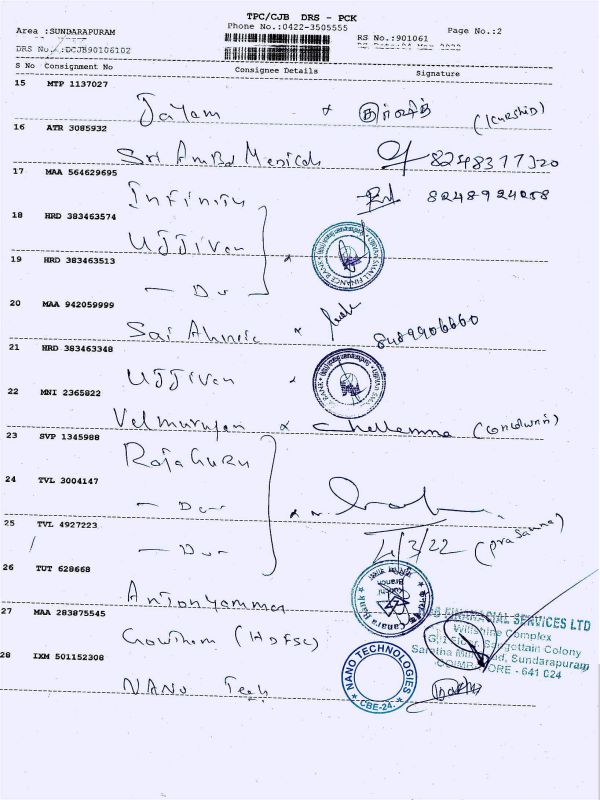 TPC/CJB DRS - PCK
Phone No.:0422-3505555
Area :SUNDARAPURAM
RS No.:901061
Page No.:2
DRS No.:DCJB90106102
S No Consignment No Consignee Details Signature
15 MTP 1137027
Jayam
16 ATR 3085932
Sri Ambal Medicals 8248317320
17 MAA 564629695
Infinity 8248924258
18 HRD 383463574
Ujjivan
19 HRD 383463513
— Do —
20 MAA 942059999
Sai 8489906660
21 HRD 383463348
Ujjivan
22 MNI 2365822
Velmurugan Chellamma
23 SVP 1345988
RajaGuru
24 TVL 3004147
— Do —
25 TVL 4927223
— Do —
4/3/22 (prasanna)
26 TUT 628668
Antonyammal
Canara Bank
Branch
27 MAA 283875545
Gowtham (HDFSC)
FINANCIAL SERVICES LTD
Complex
Colony
Sundarapuram
COIMBATORE - 641 024
28 IXM 501152308
NANO Tech
NANO TECHNOLOGIES
CBE-24.